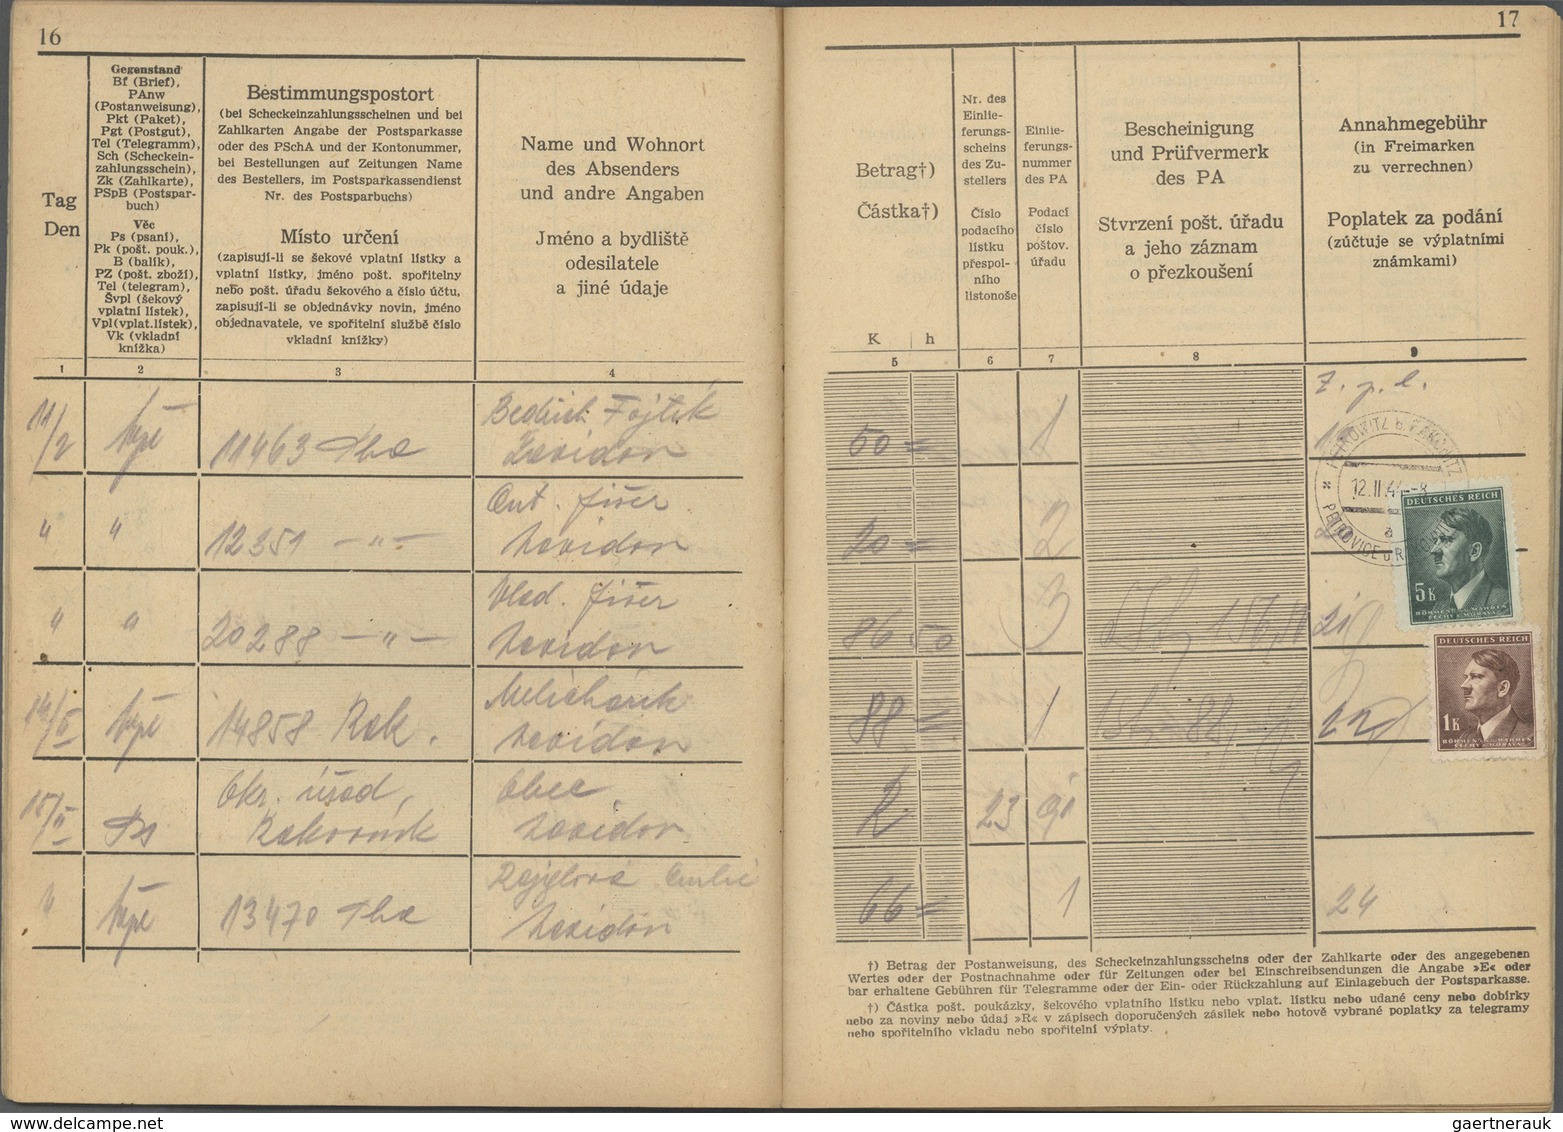 16
Tag
Den
Gegenstand
Bf (Brief),
PAnw
(Postanweisung),
Pkt (Paket),
Pgt (Postgut),
Tel (Telegramm),
Sch (Scheckein-
zahlungsschein),
Zk (Zahlkarte),
PSpB (Postspar-
buch)
Věc
Ps (psaní),
Pk (pošt. pouk.),
B (balík),
PZ (pošt. zboží),
Tel (telegram),
Švpl (šekový
vplatní lístek),
Vpl(vplat.lístek),
Vk (vkladní
knížka)
Bestimmungspostort
(bei Scheckeinzahlungsscheinen und bei
Zahlkarten Angabe der Postsparkasse
oder des PSchA und der Kontonummer,
bei Bestellungen auf Zeitungen Name
des Bestellers, im Postsparkassendienst
Nr. des Postsparbuchs)
Místo určení
(zapisují-li se šekové vplatní lístky a
vplatní lístky, jméno pošt. spořitelny
nebo pošt. úřadu šekového a číslo účtu,
zapisují-li se objednávky novin, jméno
objednavatele, ve spořitelní službě číslo
vkladní knížky)
Name und Wohnort
des Absenders
und andre Angaben
Jméno a bydliště
odesilatele
a jiné údaje
1 2 3 4
11/2
11463
Zavidov
" " 12351 — " —
Ant. Fišer
Zavidov
" " 20288 — " —
Vlad. Fišer
Zavidov
14858 Rak.
Melichárik
Zavidov
15/II Ps Okr. úřad,
Rakovník
Obec
Zavidov
13470
Zavidov
17
Betrag†)
Částka†)
K h
Nr. des
Einlie-
ferungs-
scheins
des Zu-
stellers
Číslo
podacího
lístku
přespol-
ního
listonoše
Einlie-
ferungs-
nummer
des PA
Podací
číslo
poštov.
úřadu
Bescheinigung
und Prüfvermerk
des PA
Stvrzení pošt. úřadu
a jeho záznam
o přezkoušení
Annahmegebühr
(in Freimarken
zu verrechnen)
Poplatek za podání
(zúčtuje se výplatními
známkami)
5 6 7 8 9
50 = 1
20 = 2
86 50 3
88 = 1
R 23
66 = 1 24
12.II.4
DEUTSCHES REICH
5 K
BÖHMEN U. MÄHREN
ČECHY A MORAVA
DEUTSCHES REICH
1 K
BÖHMEN U. MÄHREN
ČECHY A MORAVA
†) Betrag der Postanweisung, des Scheckeinzahlungsscheins oder der Zahlkarte oder des angegebenen
Wertes oder der Postnachnahme oder für Zeitungen oder bei Einschreibsendungen die Angabe »E« oder
bar erhaltene Gebühren für Telegramme oder der Ein- oder Rückzahlung auf Einlagebuch der Postsparkasse.
†) Částka pošt. poukázky, šekového vplatního lístku nebo vplat. lístku nebo udané ceny nebo dobírky
nebo za noviny nebo údaj »R« v zápisech doporučených zásilek nebo hotově vybrané poplatky za telegramy
nebo spořitelního vkladu nebo spořitelní výplaty.
gaertnerauk